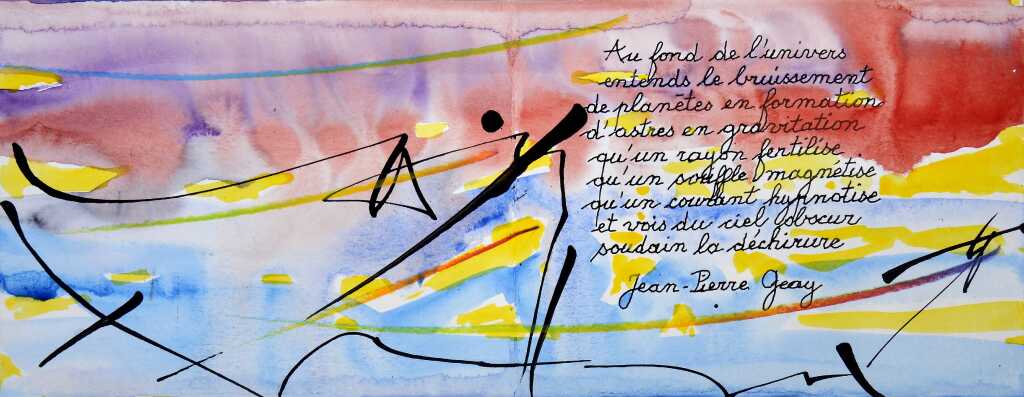 Au fond de l'univers
entends le bruissement
de planètes en formation
d'astres en gravitation
qu'un rayon fertilise
qu'un souffle magnétise
qu'un courant hypnotise
et vois du ciel obscur
soudain la déchirure
Jean-Pierre Geay